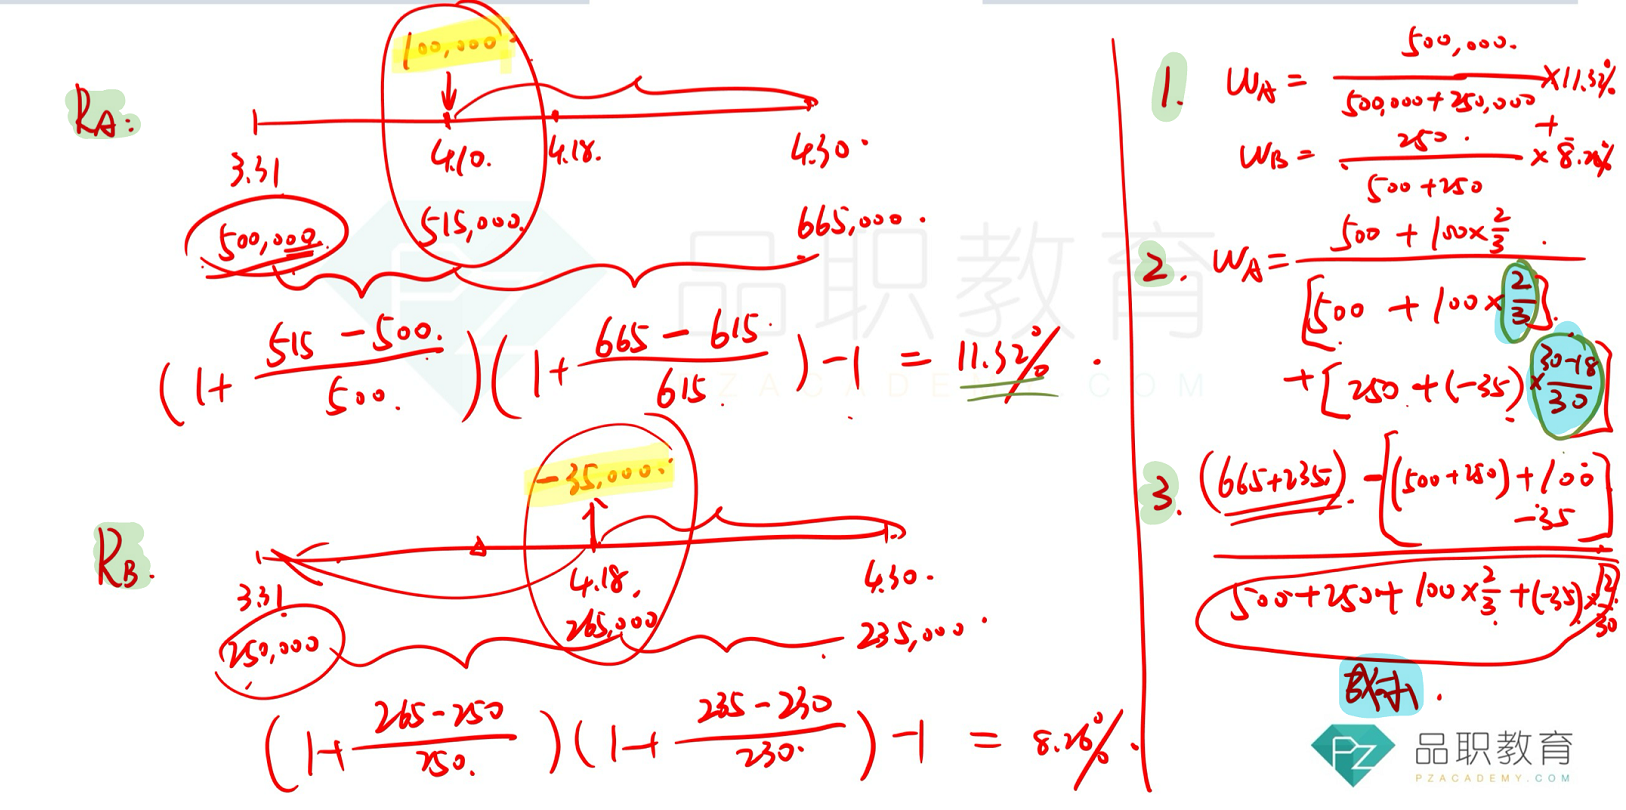 R_A:
100,000
3.31 4.10. 4.18. 4.30.
500,000 515,000 665,000.
(1+ (515-500.)/500.)(1+ (665-615)/615)-1 = 11.32%.
R_B.
-35,000.
3.31 4.18. 4.30.
250,000 265,000 235,000.
(1+ (265-250)/250.)(1+ (235-230)/230.)-1 = 8.26%.
1. W_A = 500,000./(500,000+250,000) ×11.32%
+
W_B = 250./(500+250) × 8.26%
2. W_A = (500 + 100×2/3.)/
[500 + 100×2/3].
+[250+(-35)×(30-18)/30]
3. (665+235). -[(500+250)+100
-35]
500+250+100×2/3+(-35)×12/30
品职教育
PZACADEMY.COM
PZ 品职教育
PZACADEMY.COM